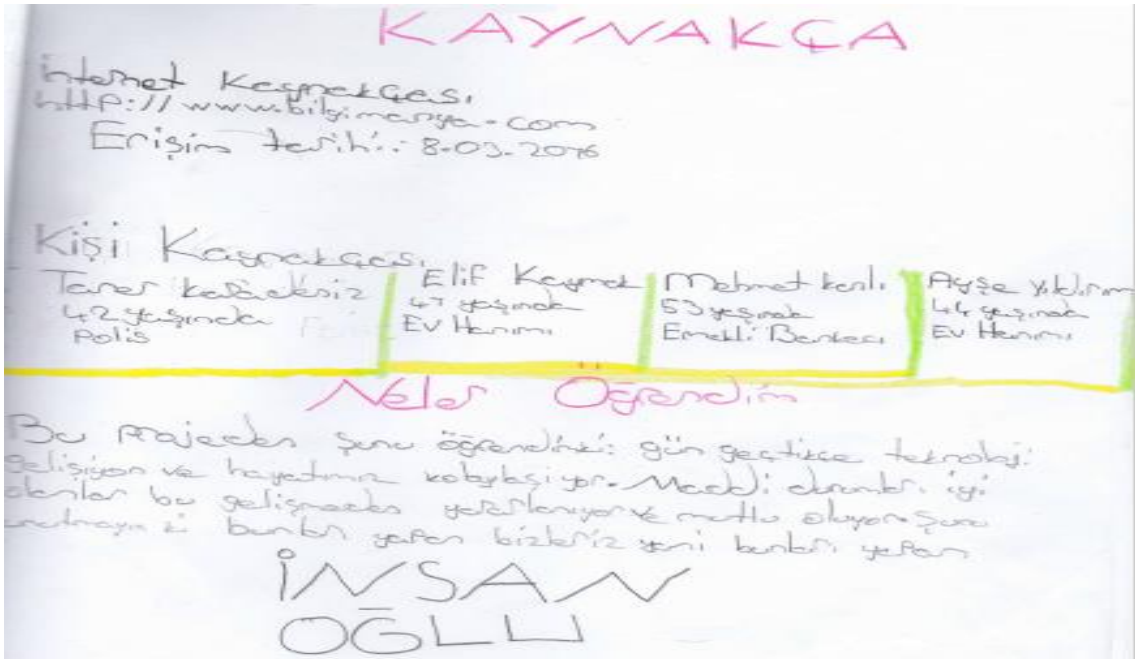 KAYNAKÇA
İnternet Kaynakçası
http://www.bilgimanya.com
Erişim tarihi: 8-03-2016
Kişi Kaynakçası
Taner Karadeniz
42 yaşında
Polis
Elif Kaymak
47 yaşında
Ev Hanımı
Mehmet
53 yaşında
Emekli Bankacı
Ayşe Yıldırım
44 yaşında
Ev Hanımı
Neler Öğrendim
Bu projeden şunu öğrendimki: gün geçtikce teknoloji
gelişiyor ve hayatımız kolaylaşıyor. Maddi durumları iyi
olanlar bu gelişmeden yararlanıyor ve mutlu oluyor. Şunu
unutmayın ki bunları yapan bizleriz yani bunları yapan
İNSAN
OĞLU